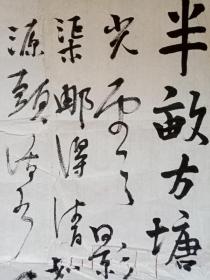 半畝方塘
光雲影
渠那得清如
源頭活水